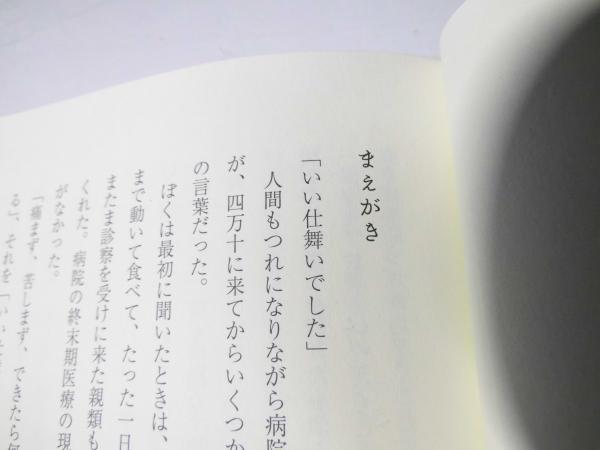 まえがき
「いい仕舞いでした」
人間もつれになりながら病院
が、四万十に来てからいくつか
の言葉だった。
ぼくは最初に聞いたときは、
まで動いて食べて、たった一日
またま診察を受けに来た親類も
くれた。病院の終末期医療の現
がなかった。
「痛まず、苦しまず、できたら何
る」、それを「いい